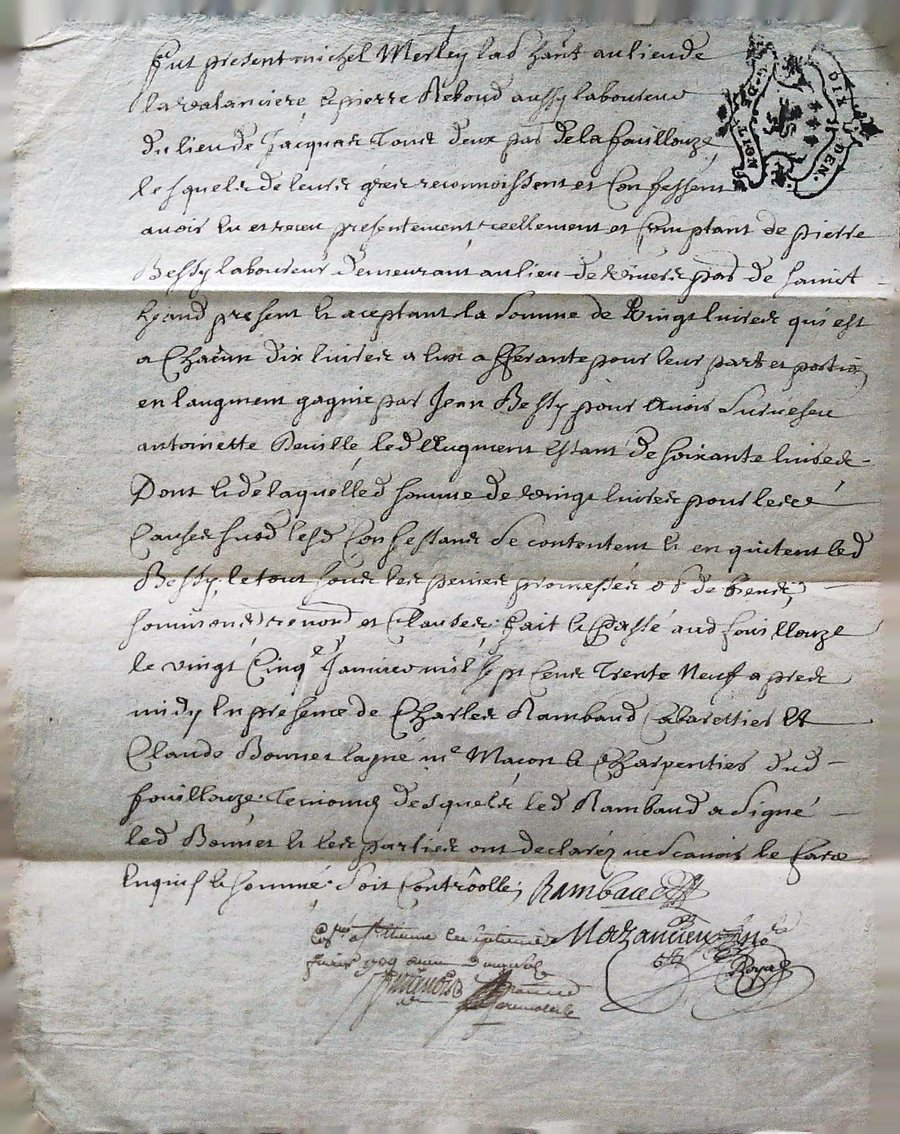 fut present michel Merley lab hant au lieu de
la valanciere & pierre Reboud aussy laboureur
du lieu de Jacquas Tous deux par de la fouillouze
lesquels de leurs grés reconnoissent et Confessent
avoir Eu et receu presentement reellement et Comptant de pierre
Bessy laboureur demeurant au lieu de par de sainct
heand present & aceptant la somme de Vingt livres qui est
a Chacun dix livres a Eux afferante pour leur part et portion
en laugment gagné par Jean Bessy pour avoir survescu
antoinette led Augment Estant de soixante livres
Dont & de laquelle d somme de vingt livres pour les
Causes susd lesd Confessants se contentent & en quitent led
Bessy, le tout sous les peines promesses ob de biens,
soumissions renond et Clauses: fait & Passé aud fouillouze
le vingt Cinqe Janvier mil sept cens Trente Neuf apres
midy En presence de Charles Rambaud Cabarettier Et
Claude Bonnet lagné me Macon & Charpentier dud
fouillouze Temoins desquels led Rambaud a signé
led Bonnet & les parties ont declaréz ne scavoir le faire
Enquis & sommé: soit Controolle; Rambaud